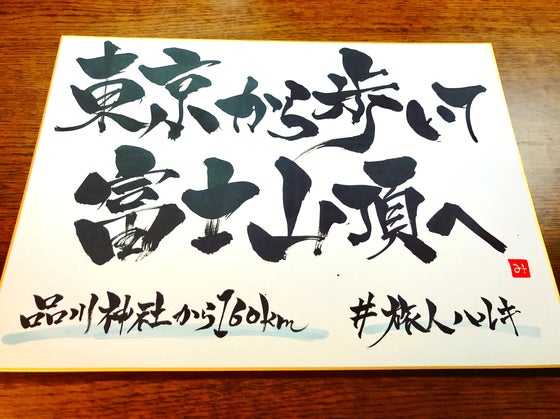 東京から歩いて
富士山頂へ
み
品川神社から160km #旅人ハルキ